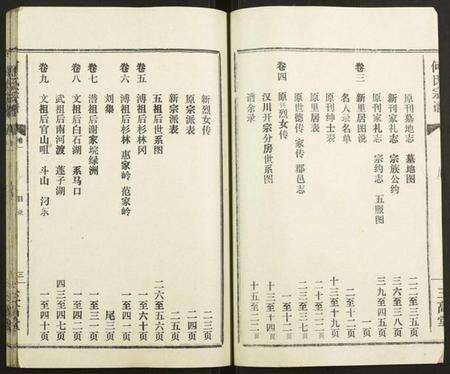 何氏宗譜
卷三
原刊墓地志 墓地图 二二至三五页
新刊家礼志 宗族公约 三六至三八页
原刊家礼志 宗约志 五服图 三九至五四页
新里居图说 一页
名人录名单 二至十二页
原刊绅士表 十三至十九页
原里居表
原世德传 家传 郡邑志
卷四
原烈女传 一至十二页
汉川开宗分房世系图 十三至十四页
谱余录 十五至二二页
三高堂
新烈女传 二三页
原宗派表 二四页
新宗派表 二五页
五祖后世系图 二六至五六页
卷五
溥祖后杉林冈 一至六十页
卷六
溥祖后杉林 惠家岭 范家岭 一至四一页
刘集 尾三页
卷七
潜祖后谢家垸绿洲 一至三一页
卷八
文祖后白石湖 系马口 一至四二页
武祖后南河渡 莲子湖 四三至四七页
卷九
文祖后官山咀 斗山 汈东 一至四十页
目录